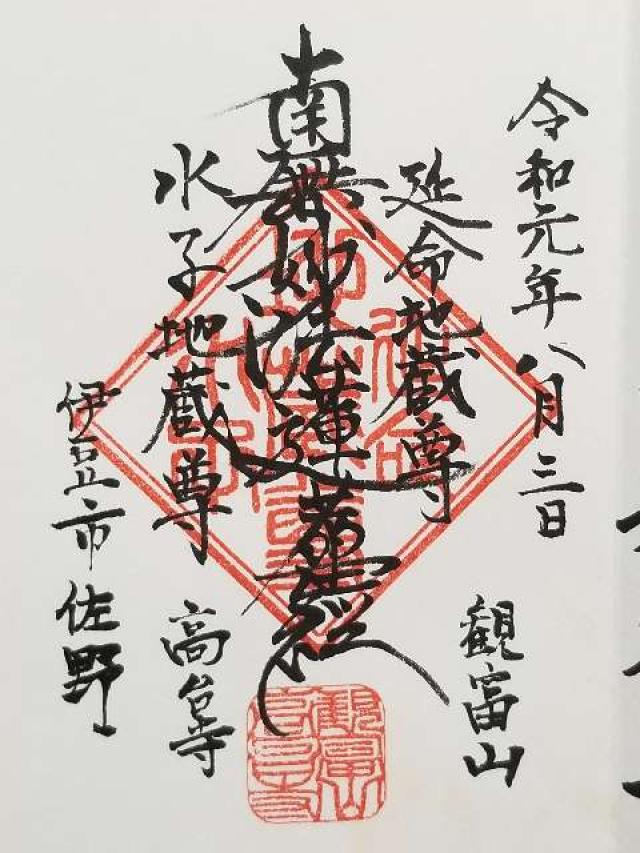 令和元年八月三日
観富山
延命地蔵尊
南無妙法蓮華経
水子地蔵尊
高台寺
伊豆市佐野
観富山
高台寺